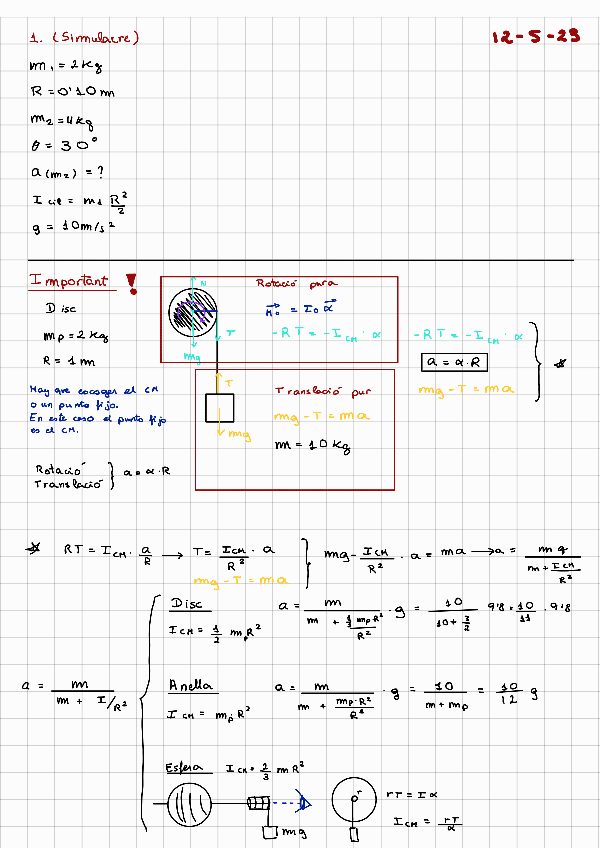 1. (Simulacre)
12-5-23
m₁ = 2 Kg
R = 0'10 m
m₂ = 4 Kg
θ = 30°
a (m₂) = ?
I cil = m₁ R²/2
g = 10 m/s²
Important !
Disc
m_p = 2 Kg
R = 1 m
Hay que escoger el CM
o un punto fijo.
En este caso el punto fijo
es el CM.
Rotació
Translació } a = α·R
N
T
mg
Rotació pura
M₀ = I₀ α
-RT = -I_CM · α
T
mg
Translació pur
mg - T = ma
m = 10 Kg
-RT = -I_CM · α
a = α·R
mg - T = ma
RT = I_CM · a/R → T = I_CM/R² · a
mg - T = ma
mg - I_CM/R² · a = ma → a = mg/(m + I_CM/R²)
a = m/(m + I/R²)
Disc
I_CM = 1/2 m_p R²
a = m/(m + (1/2 m_p R²)/R²) · g = 10/(10 + 2/2) 9'8 = 10/11 · 9'8
Anella
I_CM = m_p R²
a = m/(m + (m_p·R²)/R²) · g = 10/(m + m_p) = 10/12 g
Esfera I_CM = 2/3 m R²
mg
r
rT = Iα
I_CM = rT/α